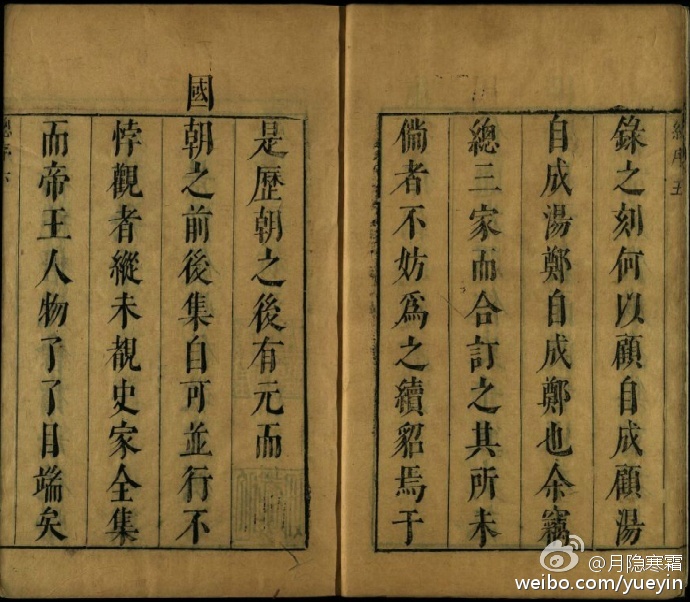 總序五
錄之刻何以顧自成顧湯
自成湯鄭自成鄭也余竊
總三家而合訂之其所未
備者不妨爲之續貂焉于
是歷朝之後有元而
國朝之前後集自可並行不
悖觀者縱未覩史家全集
而帝王人物了了目端矣
總序六
@月隐寒霜
weibo.com/yueyin